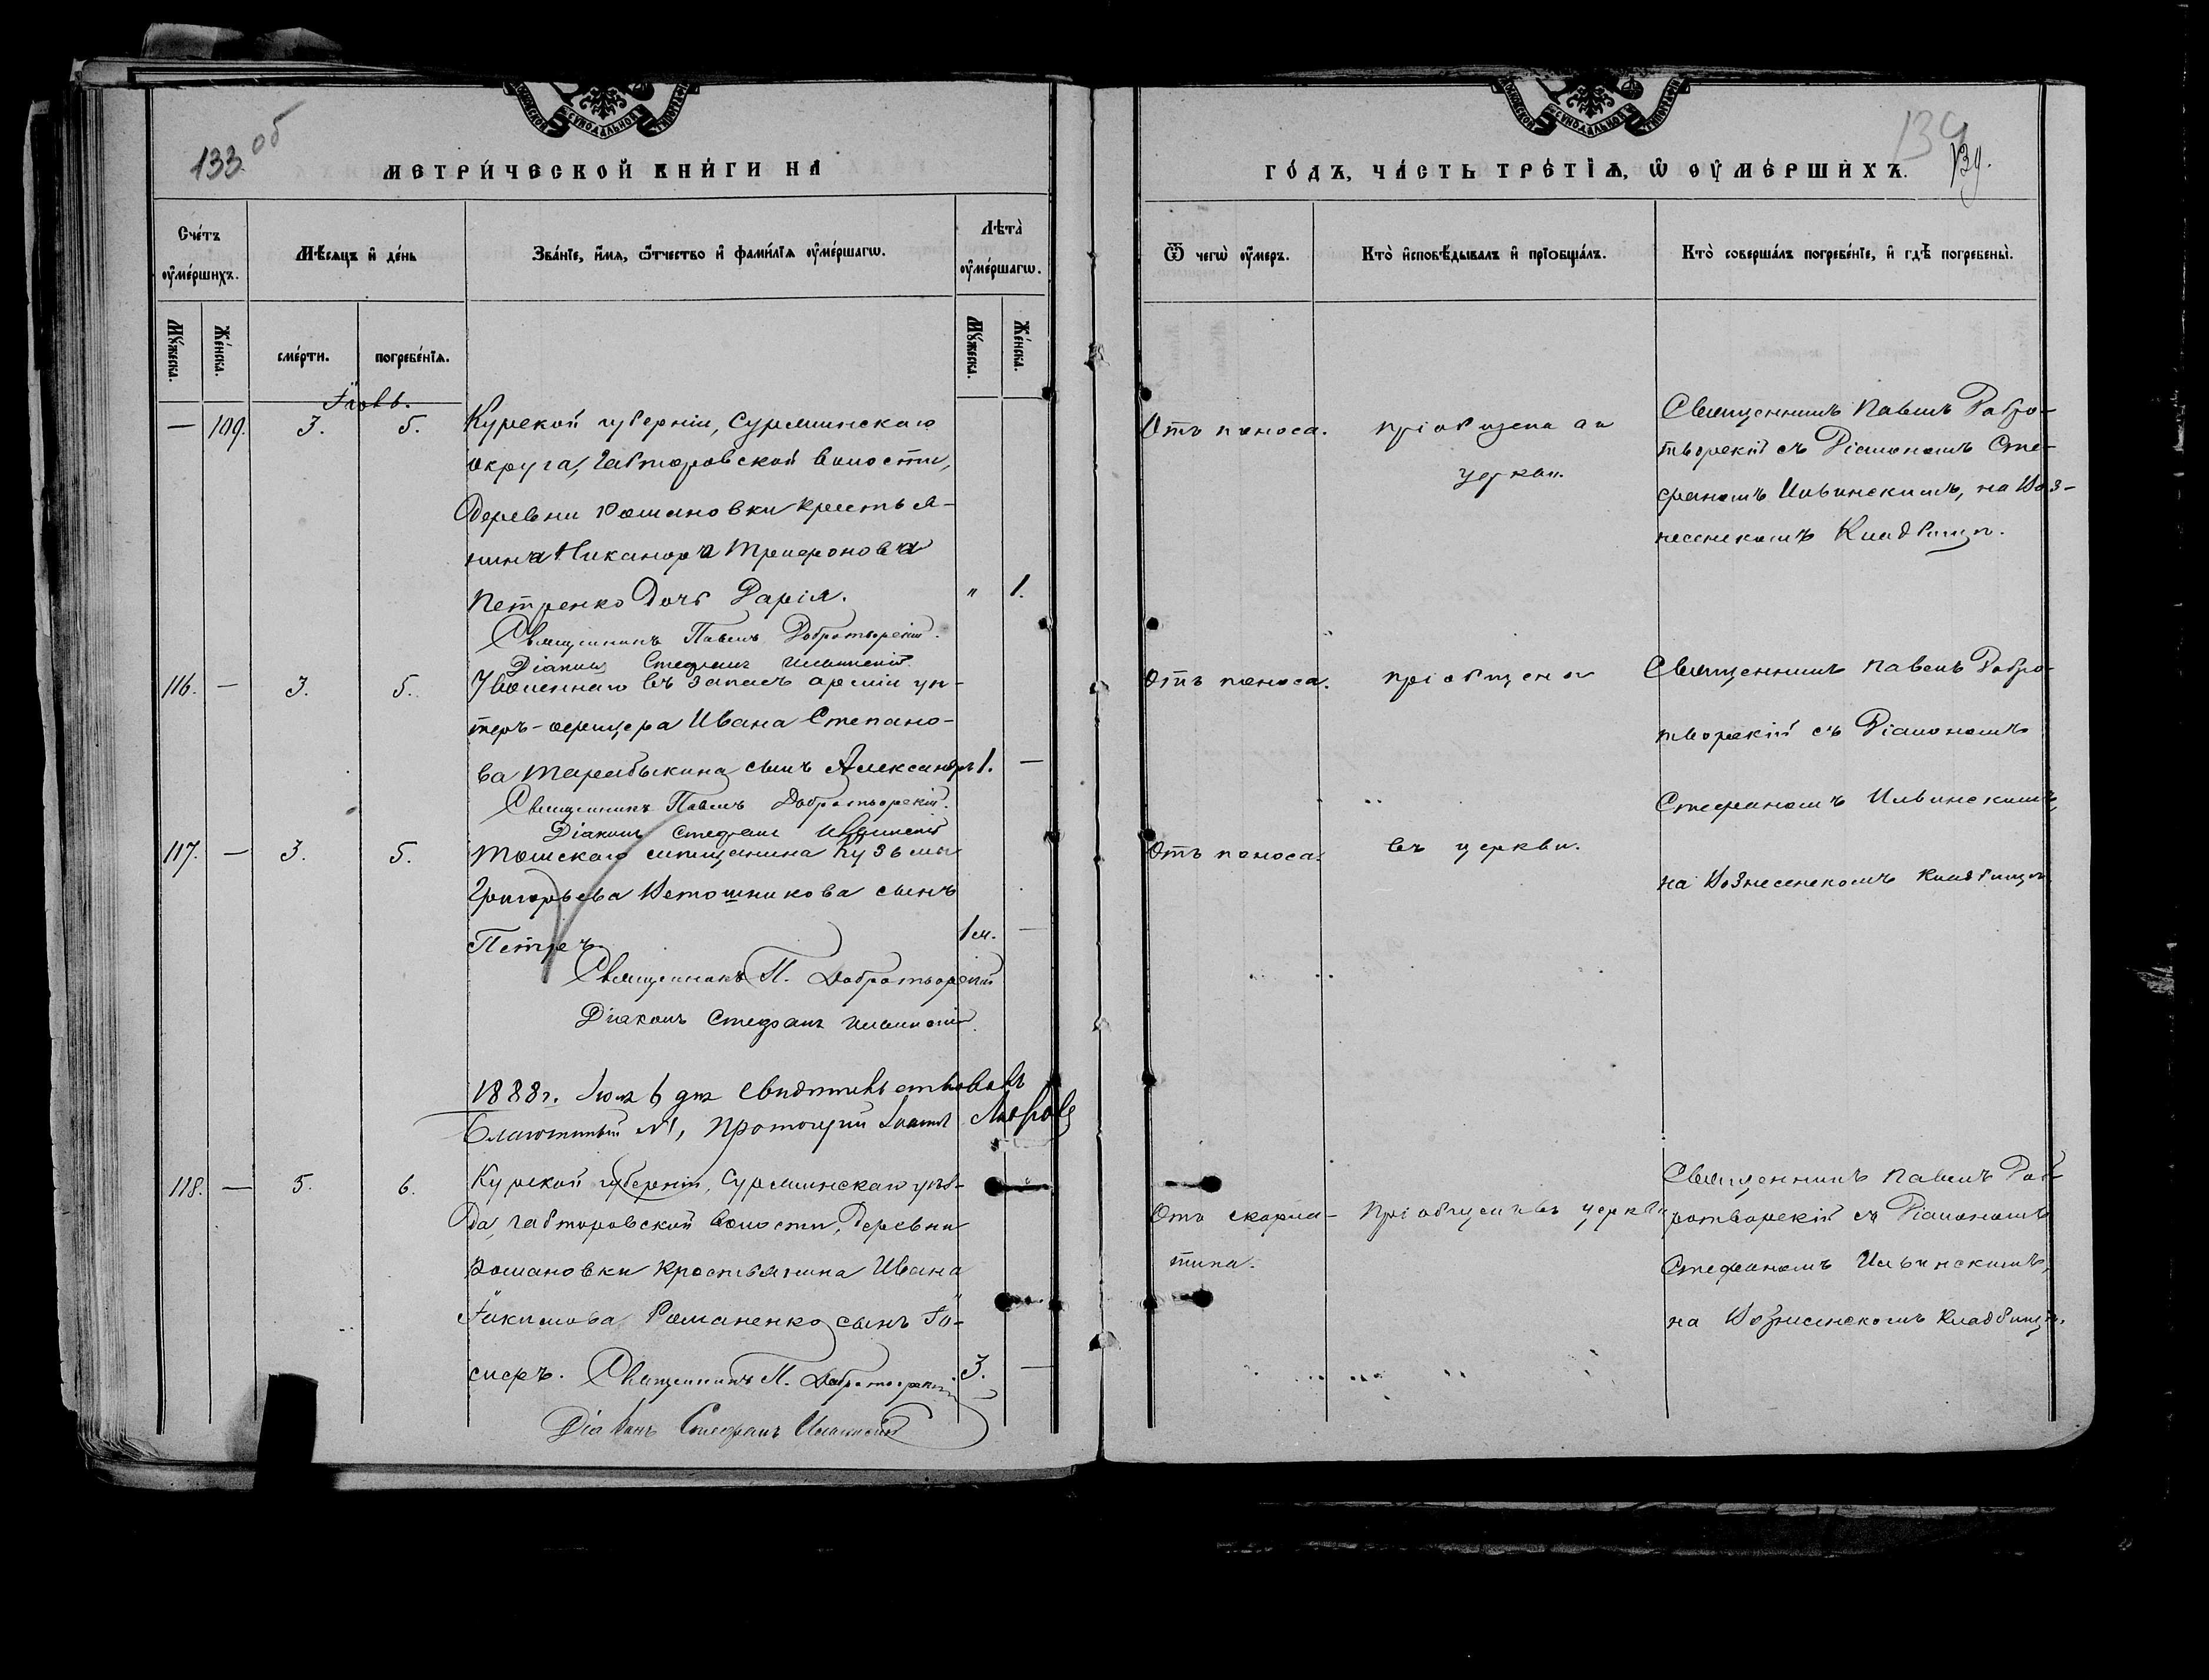 133 об
МЕТРИ́ЧЕСКОЙ КНИ́ГИ НА
Сче́тъ ᲂу҆ме́ршихъ.
Мѣ́сяцъ и҆ де́нь
Зва́нїе, и҆́мя, ѻ҆́тчество и҆ фами́лїя ᲂу҆ме́ршагѡ.
Лѣта̀ ᲂу҆ме́ршагѡ.
Мꙋ́жеска.
Же́нска.
сме́рти.
погребе́нїѧ.
Мꙋ́жеска.
Же́нска.
Іюль.
— 109. 3. 5. Курской губерніи, Суджинскаго
округа, волости,
Деревни Романовки крестья-
нина Никанора Трифонова
Петренко дочь Дарія. " 1.
Священникъ Павелъ Добротворскій.
Діаконъ Стефанъ Ильинскій.
116. — 3. 5. Уволеннаго въ запасъ арміи ун-
теръ-офицера Ивана Степано-
ва Тарабыкина сынъ Александръ 1. —
Священникъ Павелъ Добротворскій.
Діаконъ Стефанъ Ильинскій
117. — 3. 5. Томскаго мѣщанина Кузьмы
Григорьева Ветошникова сынъ
Петръ. 1 м. —
Священникъ П. Добротворскій
Діаконъ Стефанъ Ильинскій.
1888 г. Іюля 6 дня свидѣтельствовалъ
Благочинный №1, Протоіерей Іоаннъ
118. — 5. 6. Курской губерніи, Суджинскаго уѣз-
да, волости, Деревни
Романовки крестьянина Ивана
Іакимова Романенко сынъ Іо-
сифъ. 3. —
Священникъ П. Добротворскій
Діаконъ Стефанъ Ильинскій
ГО́ДЪ, ЧА́СТЬ ТРЕ́ТЇѦ, Ѡ҆ ОУ҆МЕ́РШИХЪ.
134
134.
Ѿ чегѡ̀ ᲂу҆́меръ.
Кто̀ и҆сповѣ́дывалъ и҆ прїобща́лъ.
Кто̀ соверша́лъ погребе́нїе, и҆ гдѣ̀ погребены̀.
Отъ поноса.
пріобщена въ
церкви.
Священникъ Павелъ Добро-
творскій съ Діакономъ Сте-
фаномъ Ильинскимъ, на Воз-
несенскомъ Кладбищѣ.
Отъ поноса.
пріобщены
Священникъ Павелъ Добро-
творскій съ Діакономъ
Стефаномъ Ильинскимъ,
Отъ поноса.
въ церкви.
на Вознесенскомъ Кладбищѣ
Отъ скарла-
тина.
Пріобщенъ въ церкви
Священникъ Павелъ Доб-
ротворскій съ Діакономъ
Стефаномъ Ильинскимъ,
на Вознесенскомъ Кладбищѣ.